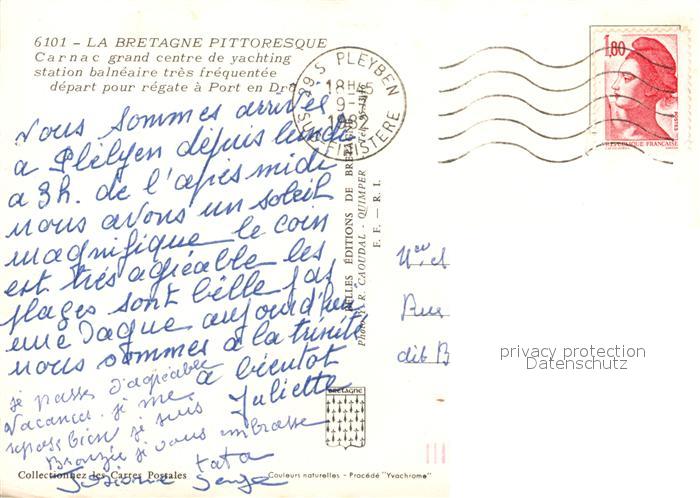 6101 - LA BRETAGNE PITTORESQUE
Carnac grand centre de yachting
station balnéaire très fréquentée
départ pour régate à Port en Dro
29 S PLEYBEN
18H
9
FINISTERE
1,80
POSTES
REPUBLIQUE FRANÇAISE
nous sommes arrivée
a Plélyen depuis lundi
a 3h. de l'après midi
nous avons un soleil
magnifique le coin
est très agréable les
plages sont bélle pas
une Vague aujourd'hui
nous sommes a la trinité
a bientot
Juliette
je passes d'agréable
Vacances. je me
repose bien je suis
Bronzée je vous embrasse
tata
Josiane Serge
BELLES ÉDITIONS DE BRETAGNE
Photo R. CAOUDAL - QUIMPER
E. F. - R. I.
et
Rue
dit B
privacy protection
Datenschutz
BRETAGNE
Collectionnez les Cartes Postales
Couleurs naturelles - Procédé "Yvachrome"